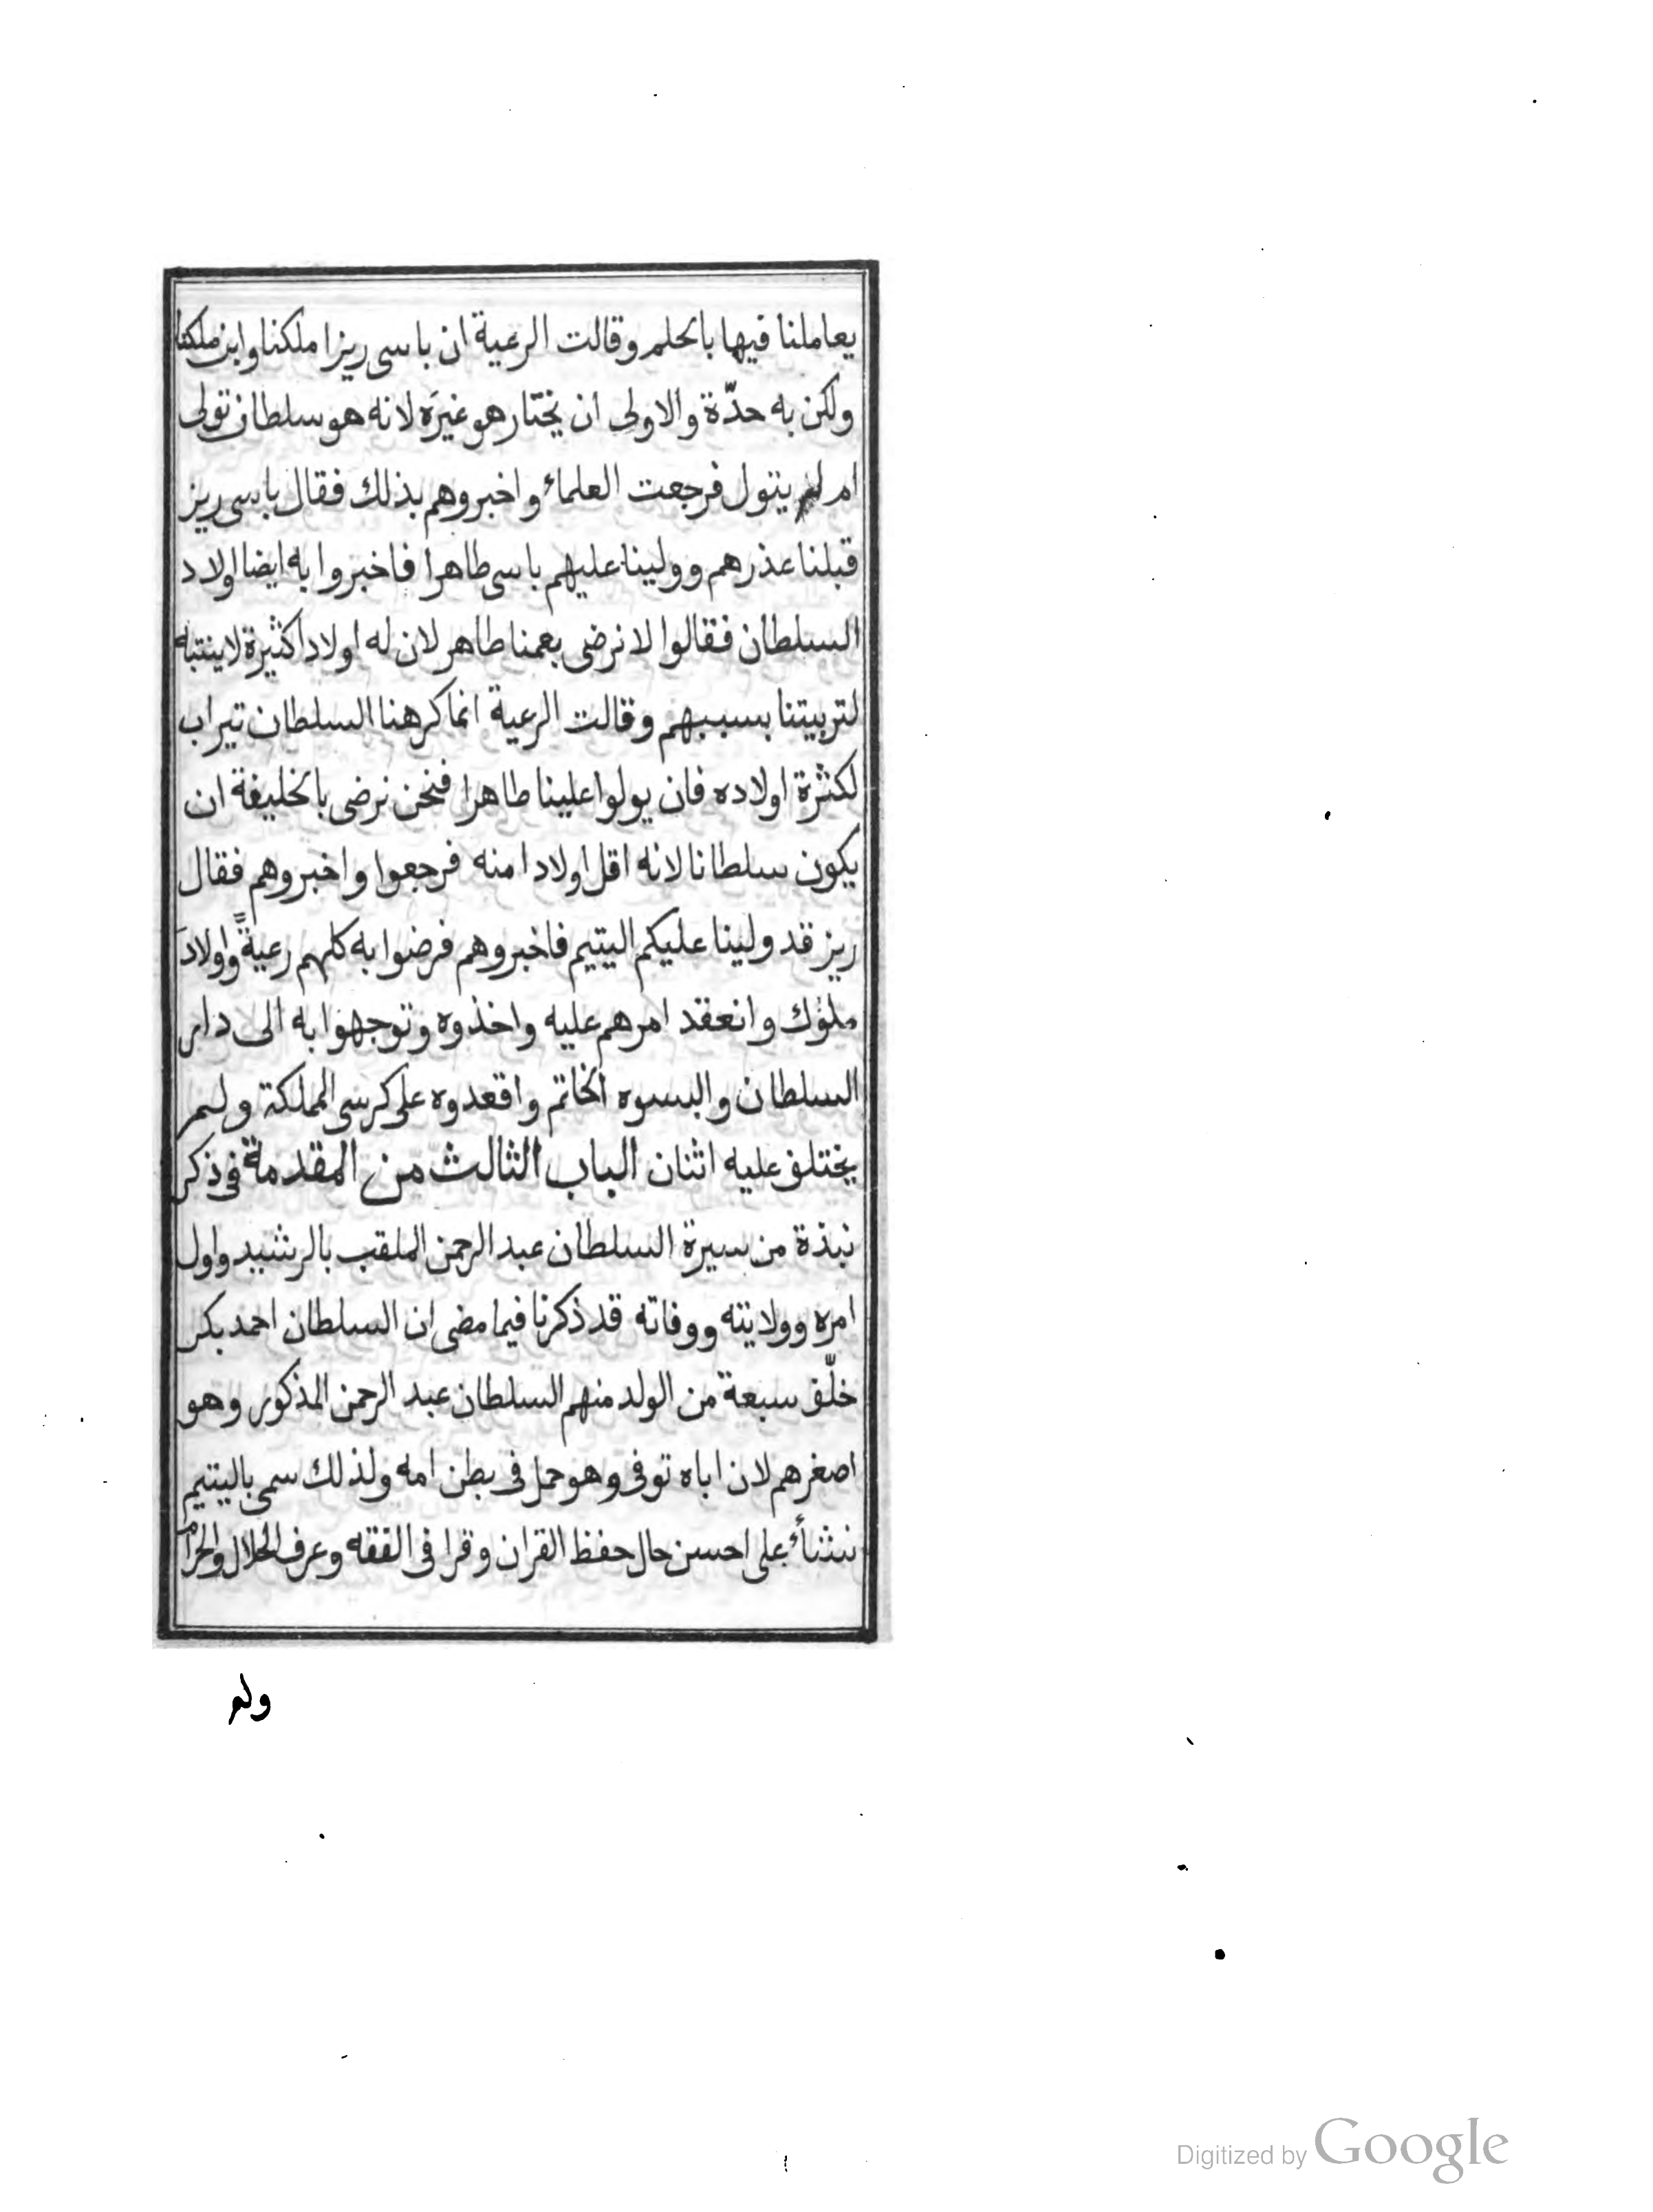 يعاملنا فيها بالحلم وقالت الرعية ان باسى ريزا ملكنا وابن ملكنا
ولكن به حدّة والاولى ان يختار هو غيرَه لانه هو سلطان تولى
ام لم يتول فرجعت العلماء واخبروهم بذلك فقال باسى ريز
قبلنا عذرهم وولينا عليهم باسى طاهرا فاخبروا به ايضا اولاد
السلطان فقالوا لا نرضى بعمنا طاهر لان له اولادا كثيرة لا ينتبه
لتربيتنا بسببهم وقالت الرعية انما كرهنا السلطان تيراب
لكثرة اولاده فان يولوا علينا طاهرا فنحن نرضى بالخليفة ان
يكون سلطانا لانه اقل اولادا منه فرجعوا واخبروهم فقال
ريز قد ولينا عليكم اليتيم فاخبروهم فرضوا به كلهم رعيةً واولادَ
ملوك وانعقد امرهم عليه واخذوه وتوجهوا به الى دار
السلطان والبسوه الخاتم واقعدوه على كرسى المملكة ولم
يختلف عليه اثنان الباب الثالث من المقدمة فى ذكر
نبذة من سيرة السلطان عبد الرحمن الملقب بالرشيد واول
امره وولايته ووفاته قد ذكرنا فيما مضى ان السلطان احمد بكر
خلّف سبعة من الولد منهم السلطان عبد الرحمن المذكور وهو
اصغرهم لان اباه توفى وهو حمل فى بطن امه ولذلك سمى باليتيم
نشأ على احسن حال حفظ القران وقرا فى الفقه وعرف الحلال والحرام
ولم
Digitized by Google